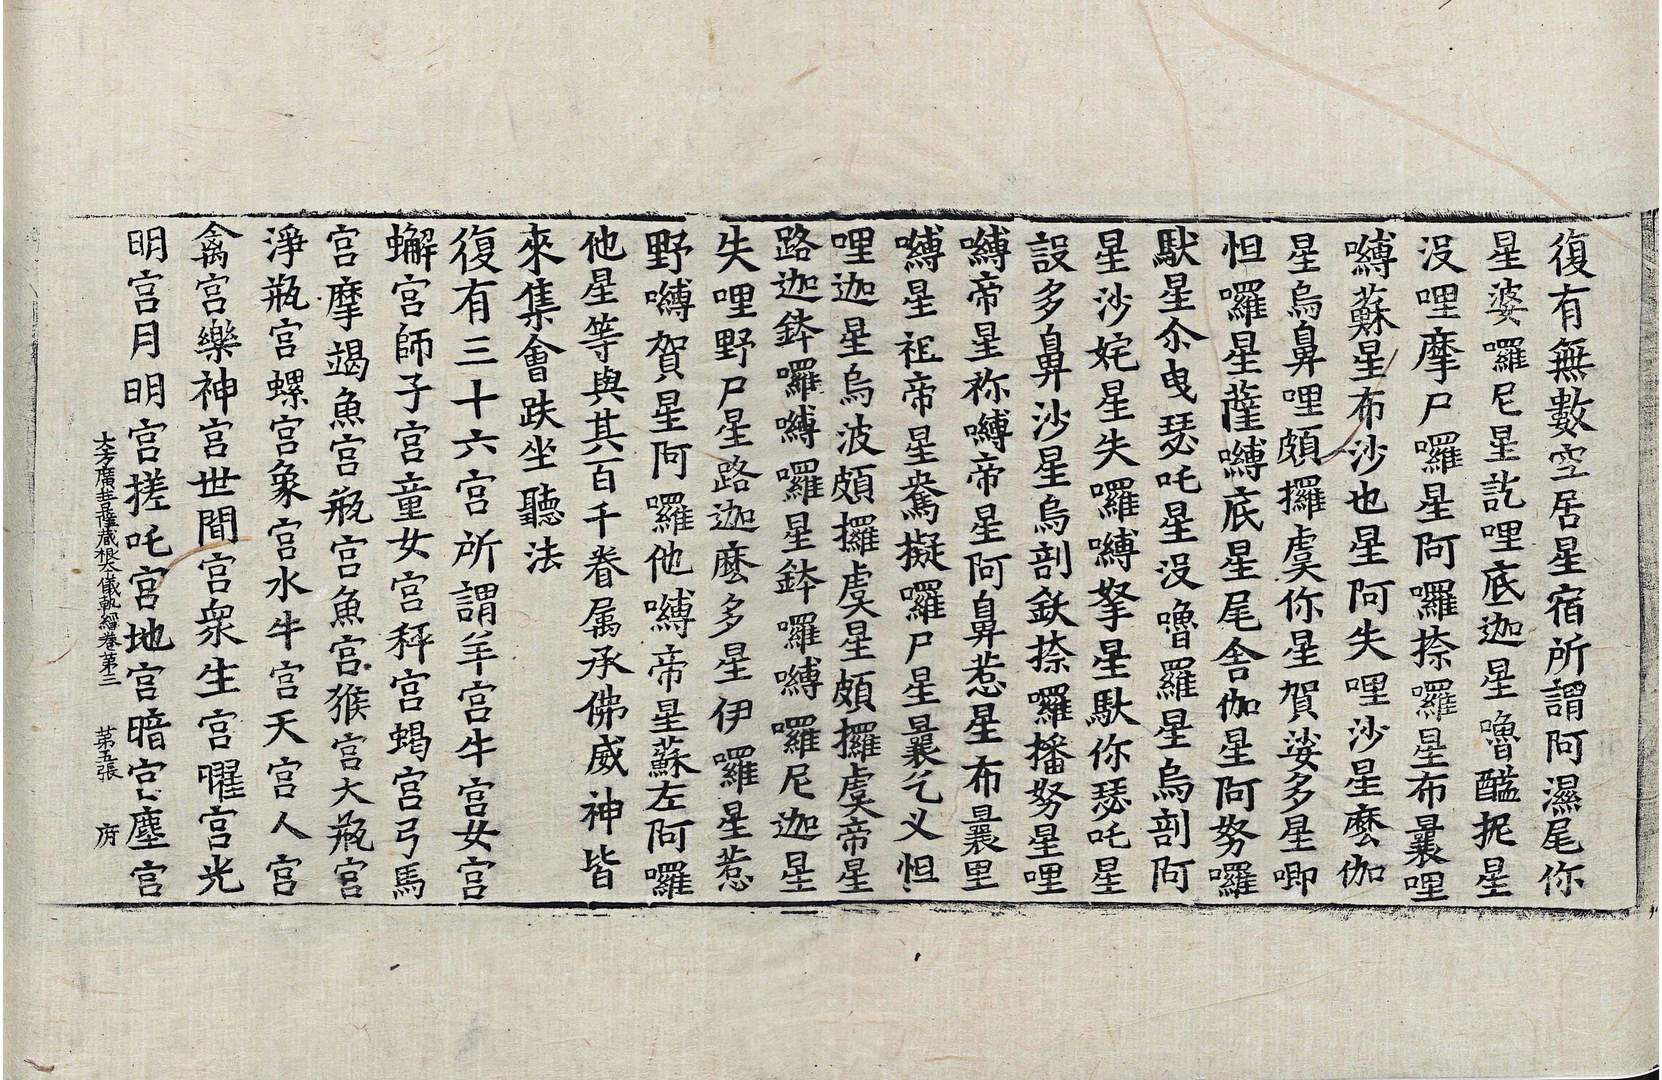 復有無數空居星宿所謂阿濕尾你
星婆囉尼星訖哩底迦星嚕醯抳星
沒哩摩尸囉星阿囉捺囉星布曩哩
嚩蘇星布沙也星阿失哩沙星麼伽
星烏鼻哩頗攞虞你星賀娑多星唧
怛囉星薩嚩底星尾舍伽星阿努囉
馱星尒曳瑟吒星沒嚕羅星烏剖阿
星沙姹星失囉嚩拏星馱你瑟吒星
設多鼻沙星烏剖鈥捺囉播努星哩
嚩帝星祢嚩帝星阿鼻惹星布曩里
嚩星祖帝星鴦擬囉尸星曩乞义怛
哩迦星烏波頗攞虞星頗攞虞帝星
路迦鉢囉嚩囉星鉢囉嚩囉尼迦星
失哩野尸星路迦麼多星伊囉星惹
野嚩賀星阿囉他嚩帝星蘇左阿囉
他星等與其百千眷属承佛威神皆
來集會跌坐聽法
復有三十六宮所謂羊宮牛宮女宮
蠏宮師子宮童女宮秤宮蝎宮弓馬
宮摩竭魚宮瓶宮魚宮猴宮大瓶宮
淨瓶宮螺宮象宮水牛宮天宮人宮
禽宮樂神宮世間宮衆生宮曜宮光
明宮月明宮搓吒宮地宮暗宮塵宮
大方廣菩薩藏根本儀軌經卷第三 第五張 府